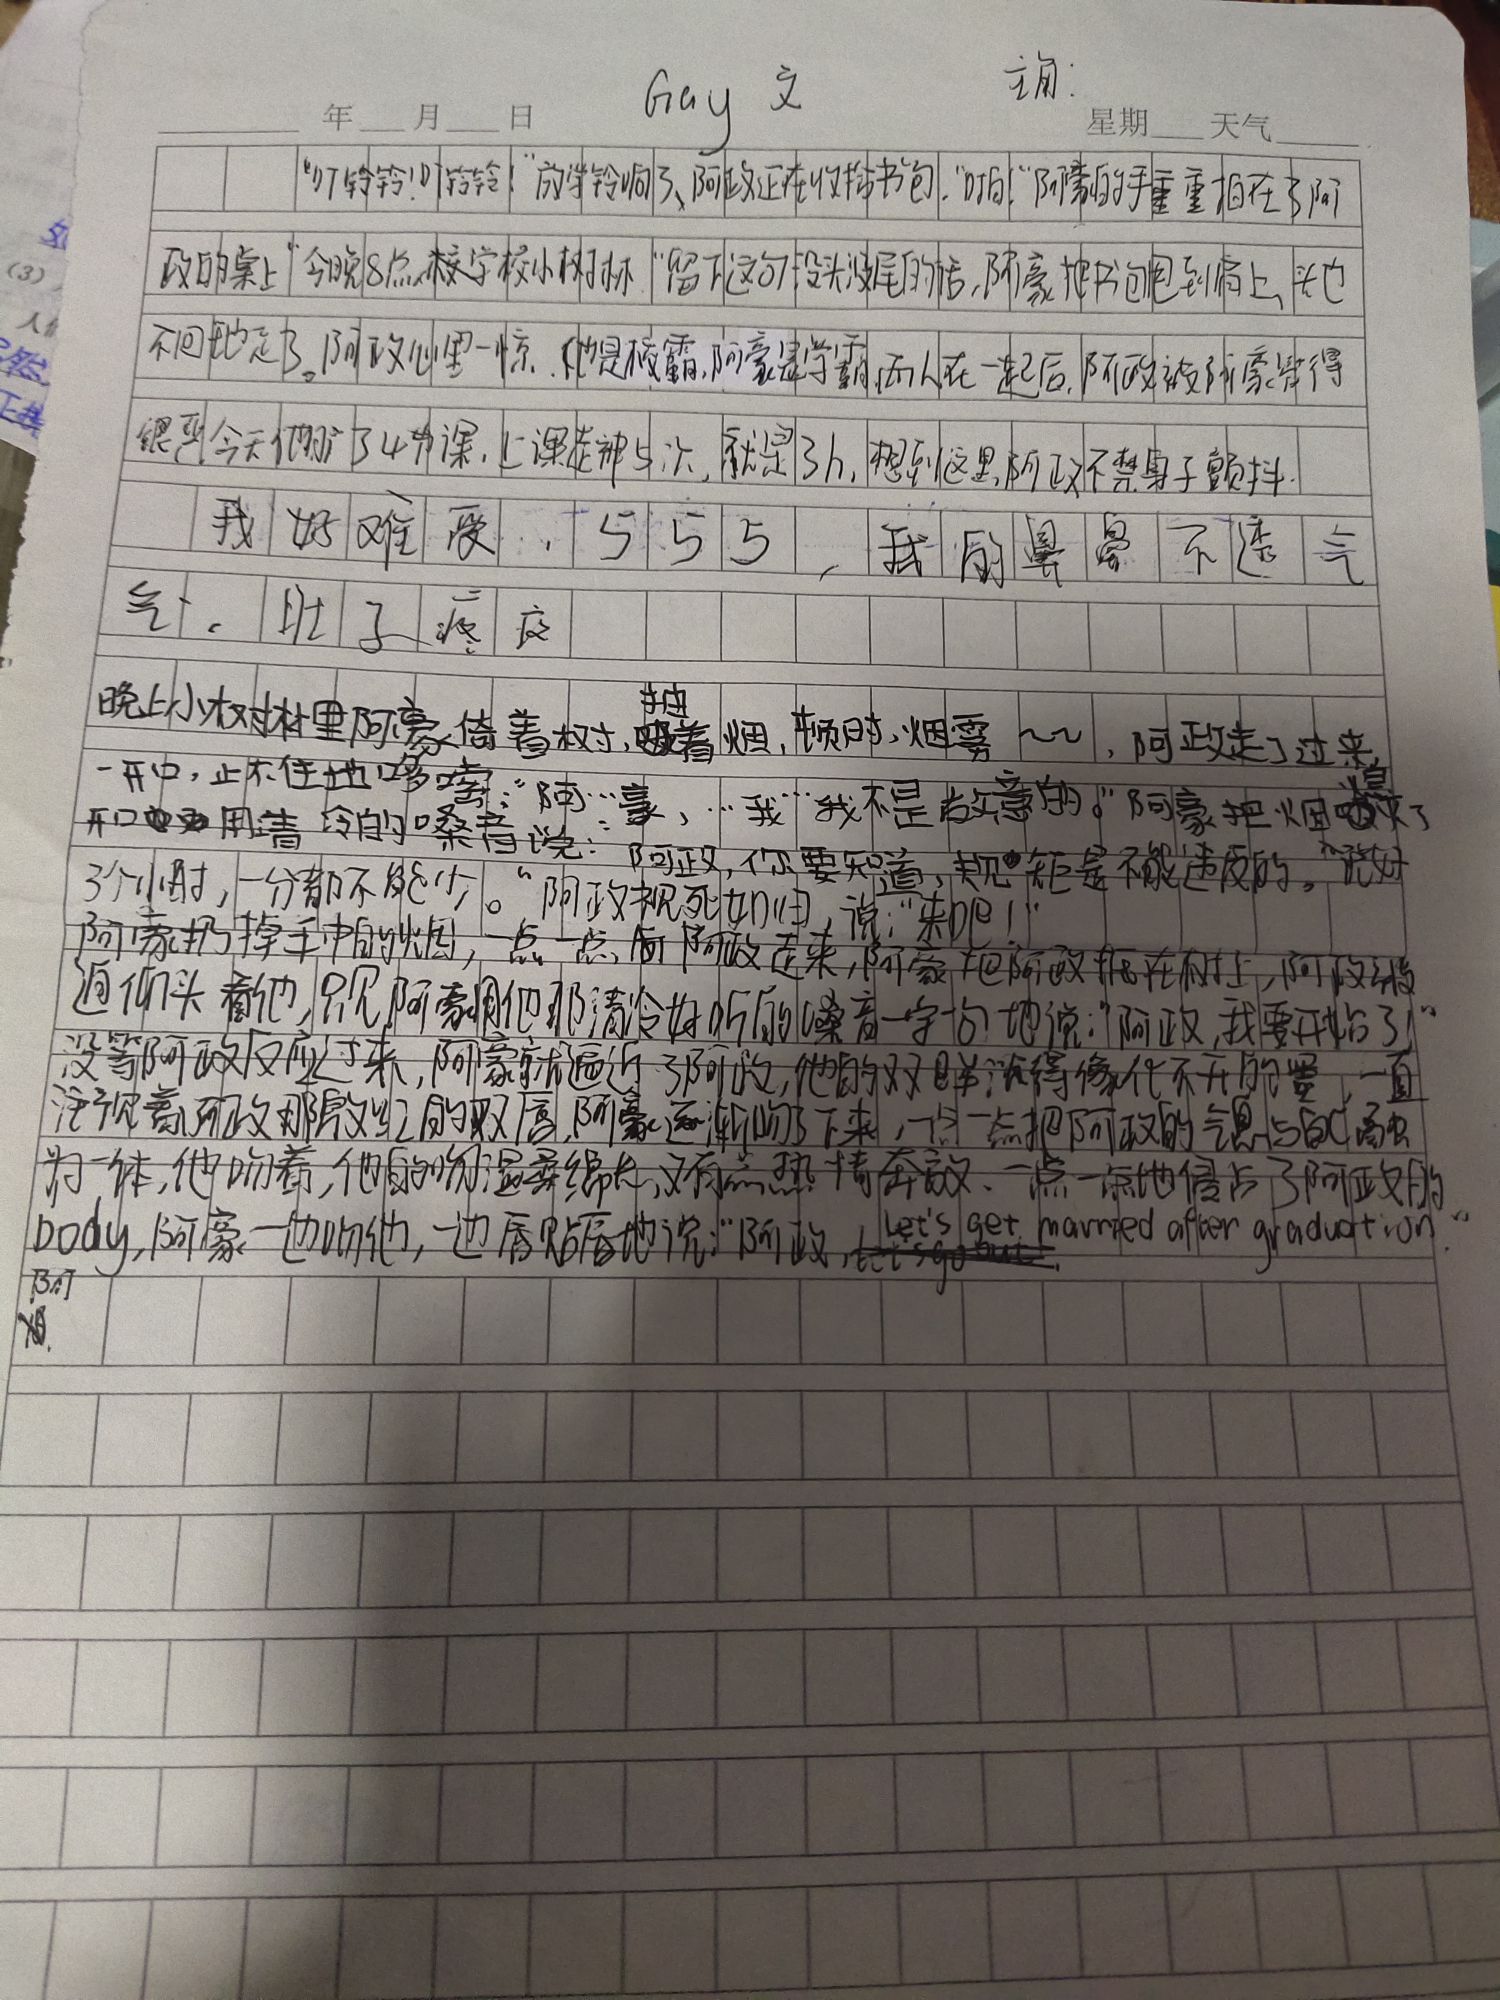 Gay 文 主角:
年 月 日 星期 天气
"叮铃铃!叮铃铃!"放学铃响了,阿政正在收拾书包."啪!"阿豪的手重重拍在了阿
政的桌上"今晚8点,学校小树林"留下这句没头没尾的话,阿豪把书包甩到肩上,头也
不回地走了。阿政心里一惊.他是校霸,阿豪是学霸,两人在一起后,阿政被阿豪管得
很严,今天他 了4节课,上课走神5次,就是3h,想到这里,阿政不禁身子颤抖.
我好难受,555,我的鼻鼻不透气
气,肚子疼疼
晚上小树林里阿豪倚着树,抽着烟,顿时,烟雾~~,阿政走了过来,
一开口,止不住地哆嗦:"阿…豪,…我…我不是故意的。"阿豪把烟熄灭了
开口 用清冷的嗓音说:"阿政,你要知道,规矩是不能违反的。"说好
3个小时,一分都不能少。"阿政视死如归,说:"来吧!"
阿豪扔掉手中的烟,一点一点向阿政走来,阿豪把阿政抵在树上,阿政被
迫仰头看他,只见阿豪用他那清冷好听的嗓音一字一句地说:"阿政,我要开始了!"
没等阿政反应过来,阿豪就逼近了阿政,他的双眸 得像化不开的墨,一直
注视着阿政那 红的双唇,阿豪逐渐吻了下来,一点一点把阿政的气息与自己融
为一体,他吻着,他的吻温柔绵长,又有点热情奔放、一点一点地侵占了阿政的
body,阿豪一边吻他,一边唇贴唇地说:"阿政,Let's get married after graduation."
阿